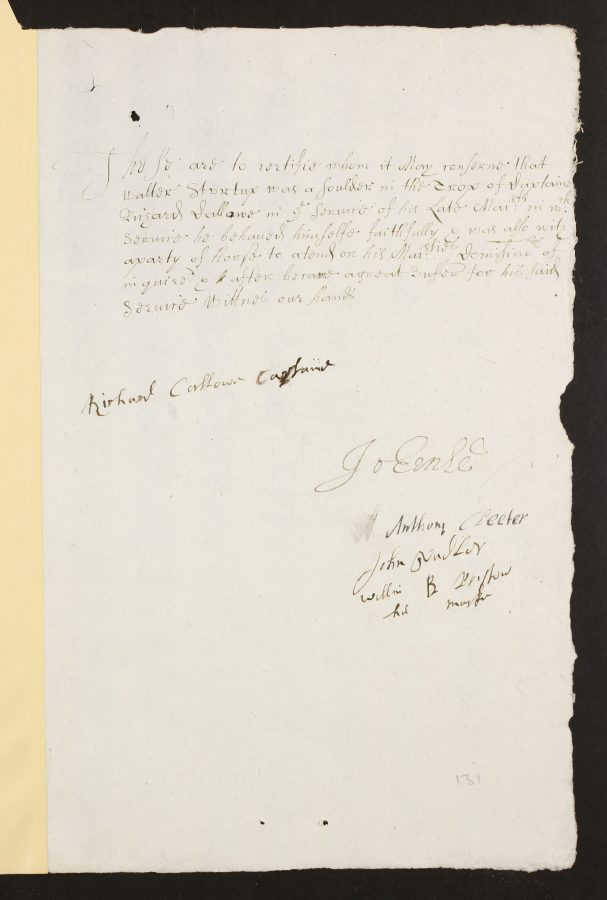 These are to certifie whom it May conserne that
Walter Startup was a souldier in the Trop of Captaine
Rizard Callawe in ye Service of his Late Maistie in wch
Service he behaued himselfe faithfully & was also with
aparty of horse to atend on his Maisties Comissinors of
inquire & after became agreat Sufer for his said
Service Wittnes our hands
Richard Callowe Captaine
Jo Ernle
Anthony Cleeter
John Sadler
Willm B Bristow
his marke
131